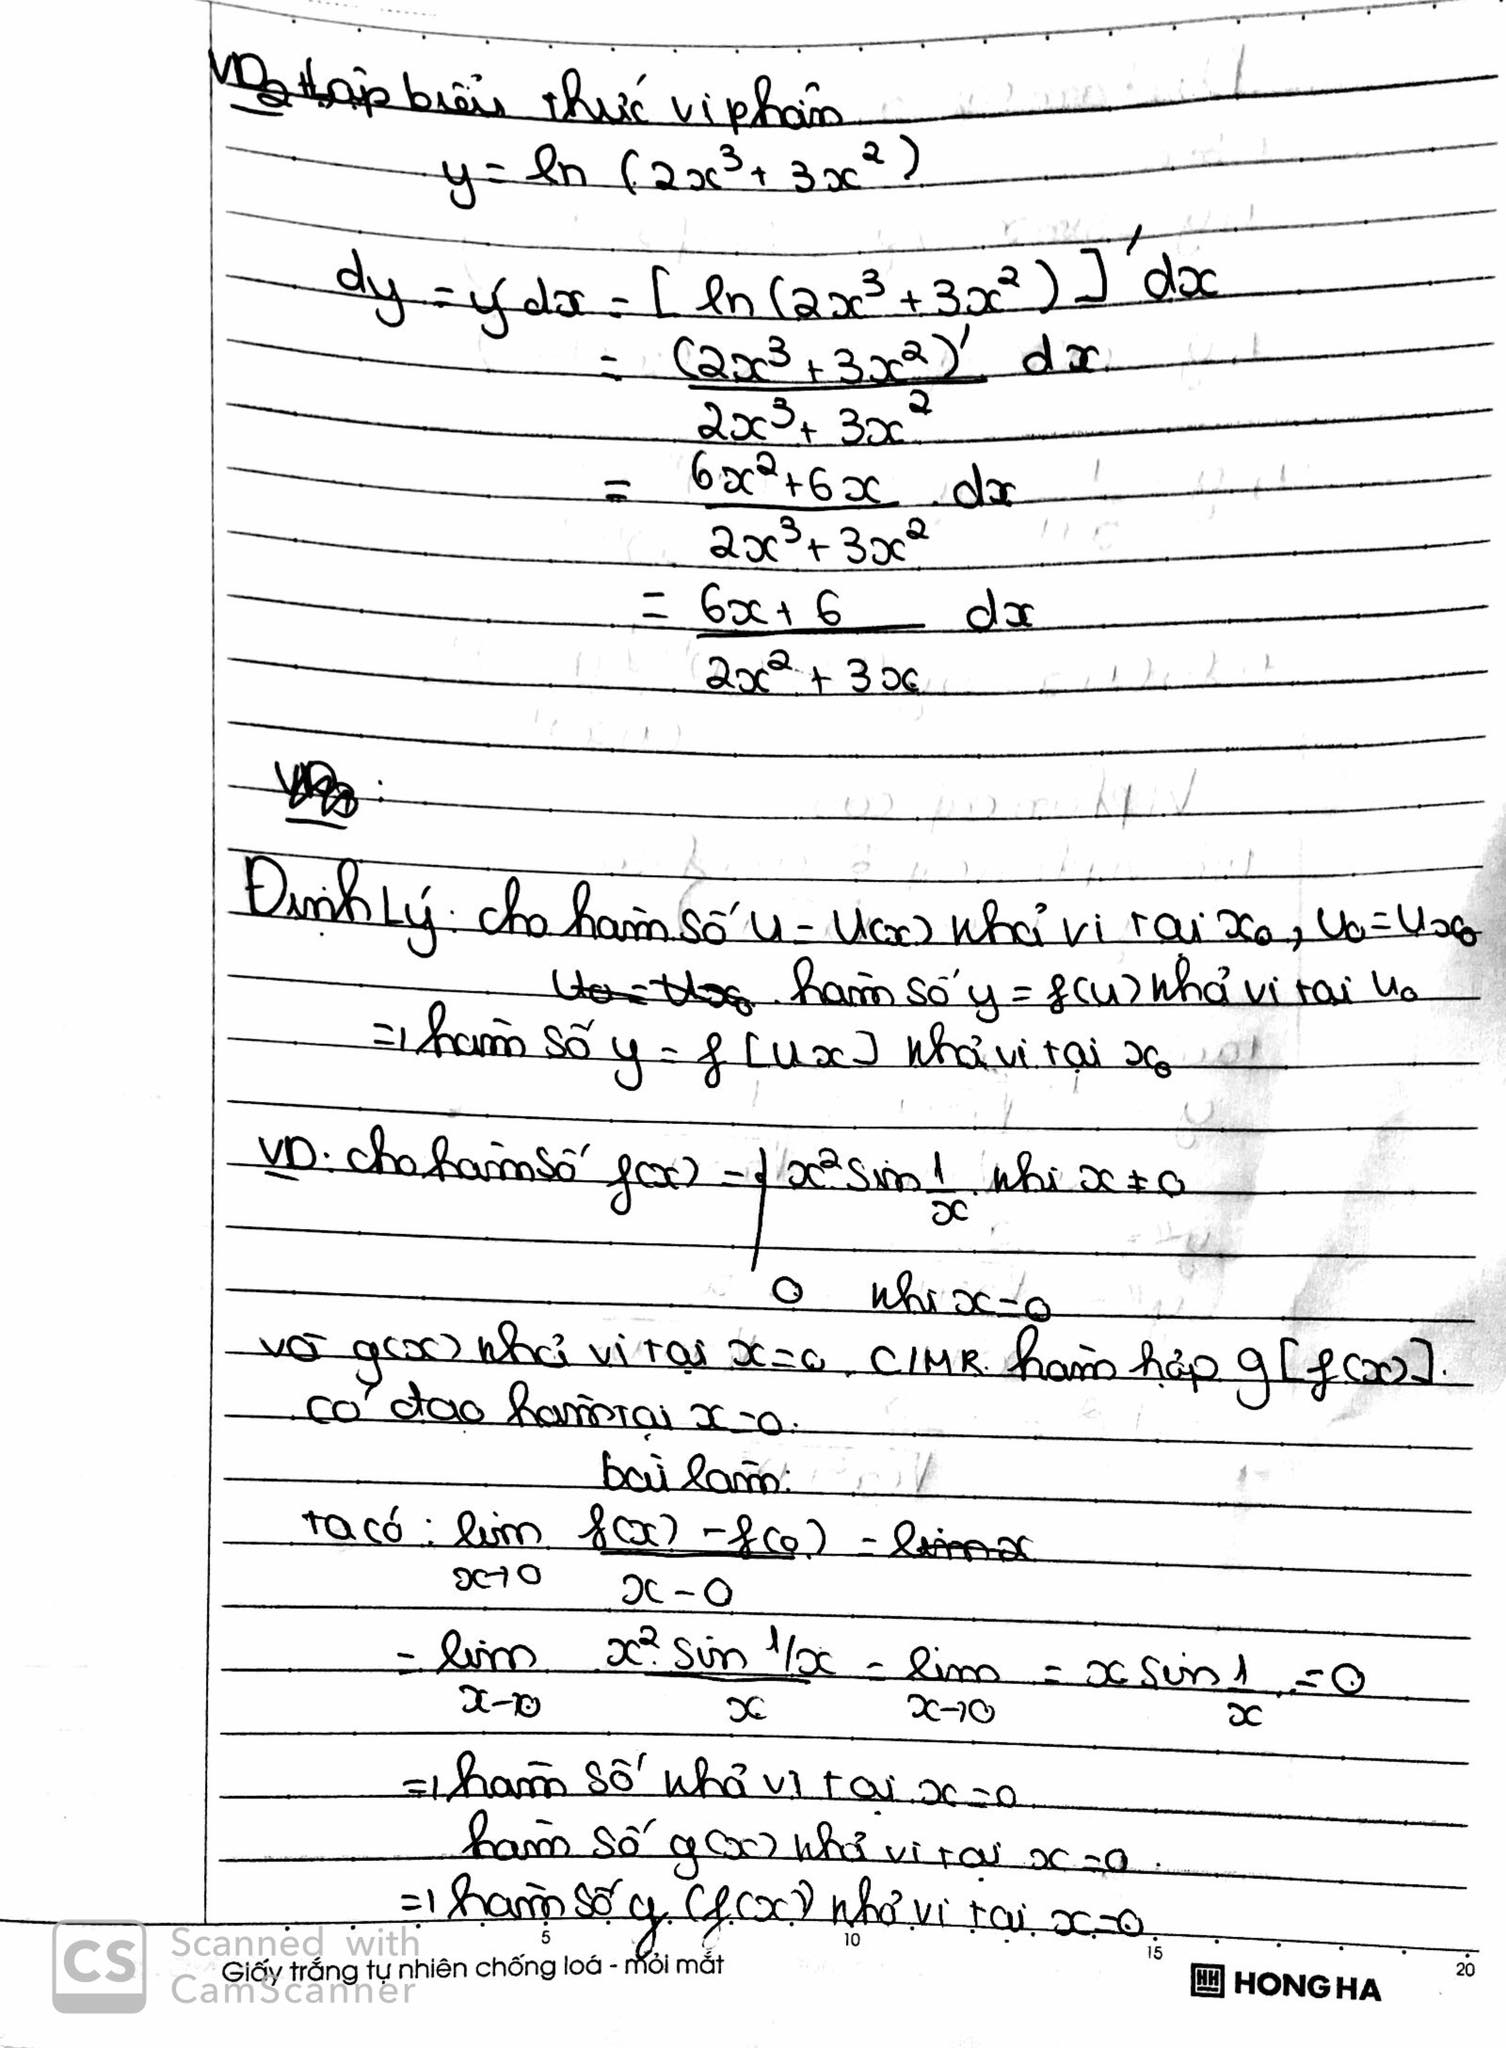 VD2: Lập biểu thức vi phân
y = ln (2x³ + 3x²)
dy = y'dx = [ ln (2x³ + 3x²) ]' dx
= (2x³ + 3x²)' dx
2x³ + 3x²
= 6x² + 6x . dx
2x³ + 3x²
= 6x + 6 dx
2x² + 3x
Định Lý: cho hàm số u = u(x) khả vi tại x₀, u₀ = ux₀
u₀ = ux₀ hàm số y = f(u) khả vi tại u₀
=> hàm số y = f [ux] khả vi tại x₀
VD: cho hàm số f(x) = { x² sin 1/x khi x ≠ 0
0 khi x = 0
và g(x) khả vi tại x = 0. CIMR hàm hợp g[f(x)].
có đạo hàm tại x = 0.
bài làm:
ta có : lim f(x) - f(0) = lim x
x→0 x - 0
= lim x² sin 1/x = lim = x sin 1 = 0
x→0 x x→0 x
=> hàm số khả vi tại x = 0
hàm số g(x) khả vi tại x = 0.
=> hàm số g (f(x)) khả vi tại x = 0
5 10 15 20
CS Scanned with CamScanner
Giấy trắng tự nhiên chống loá - mỏi mắt
HH HONG HA